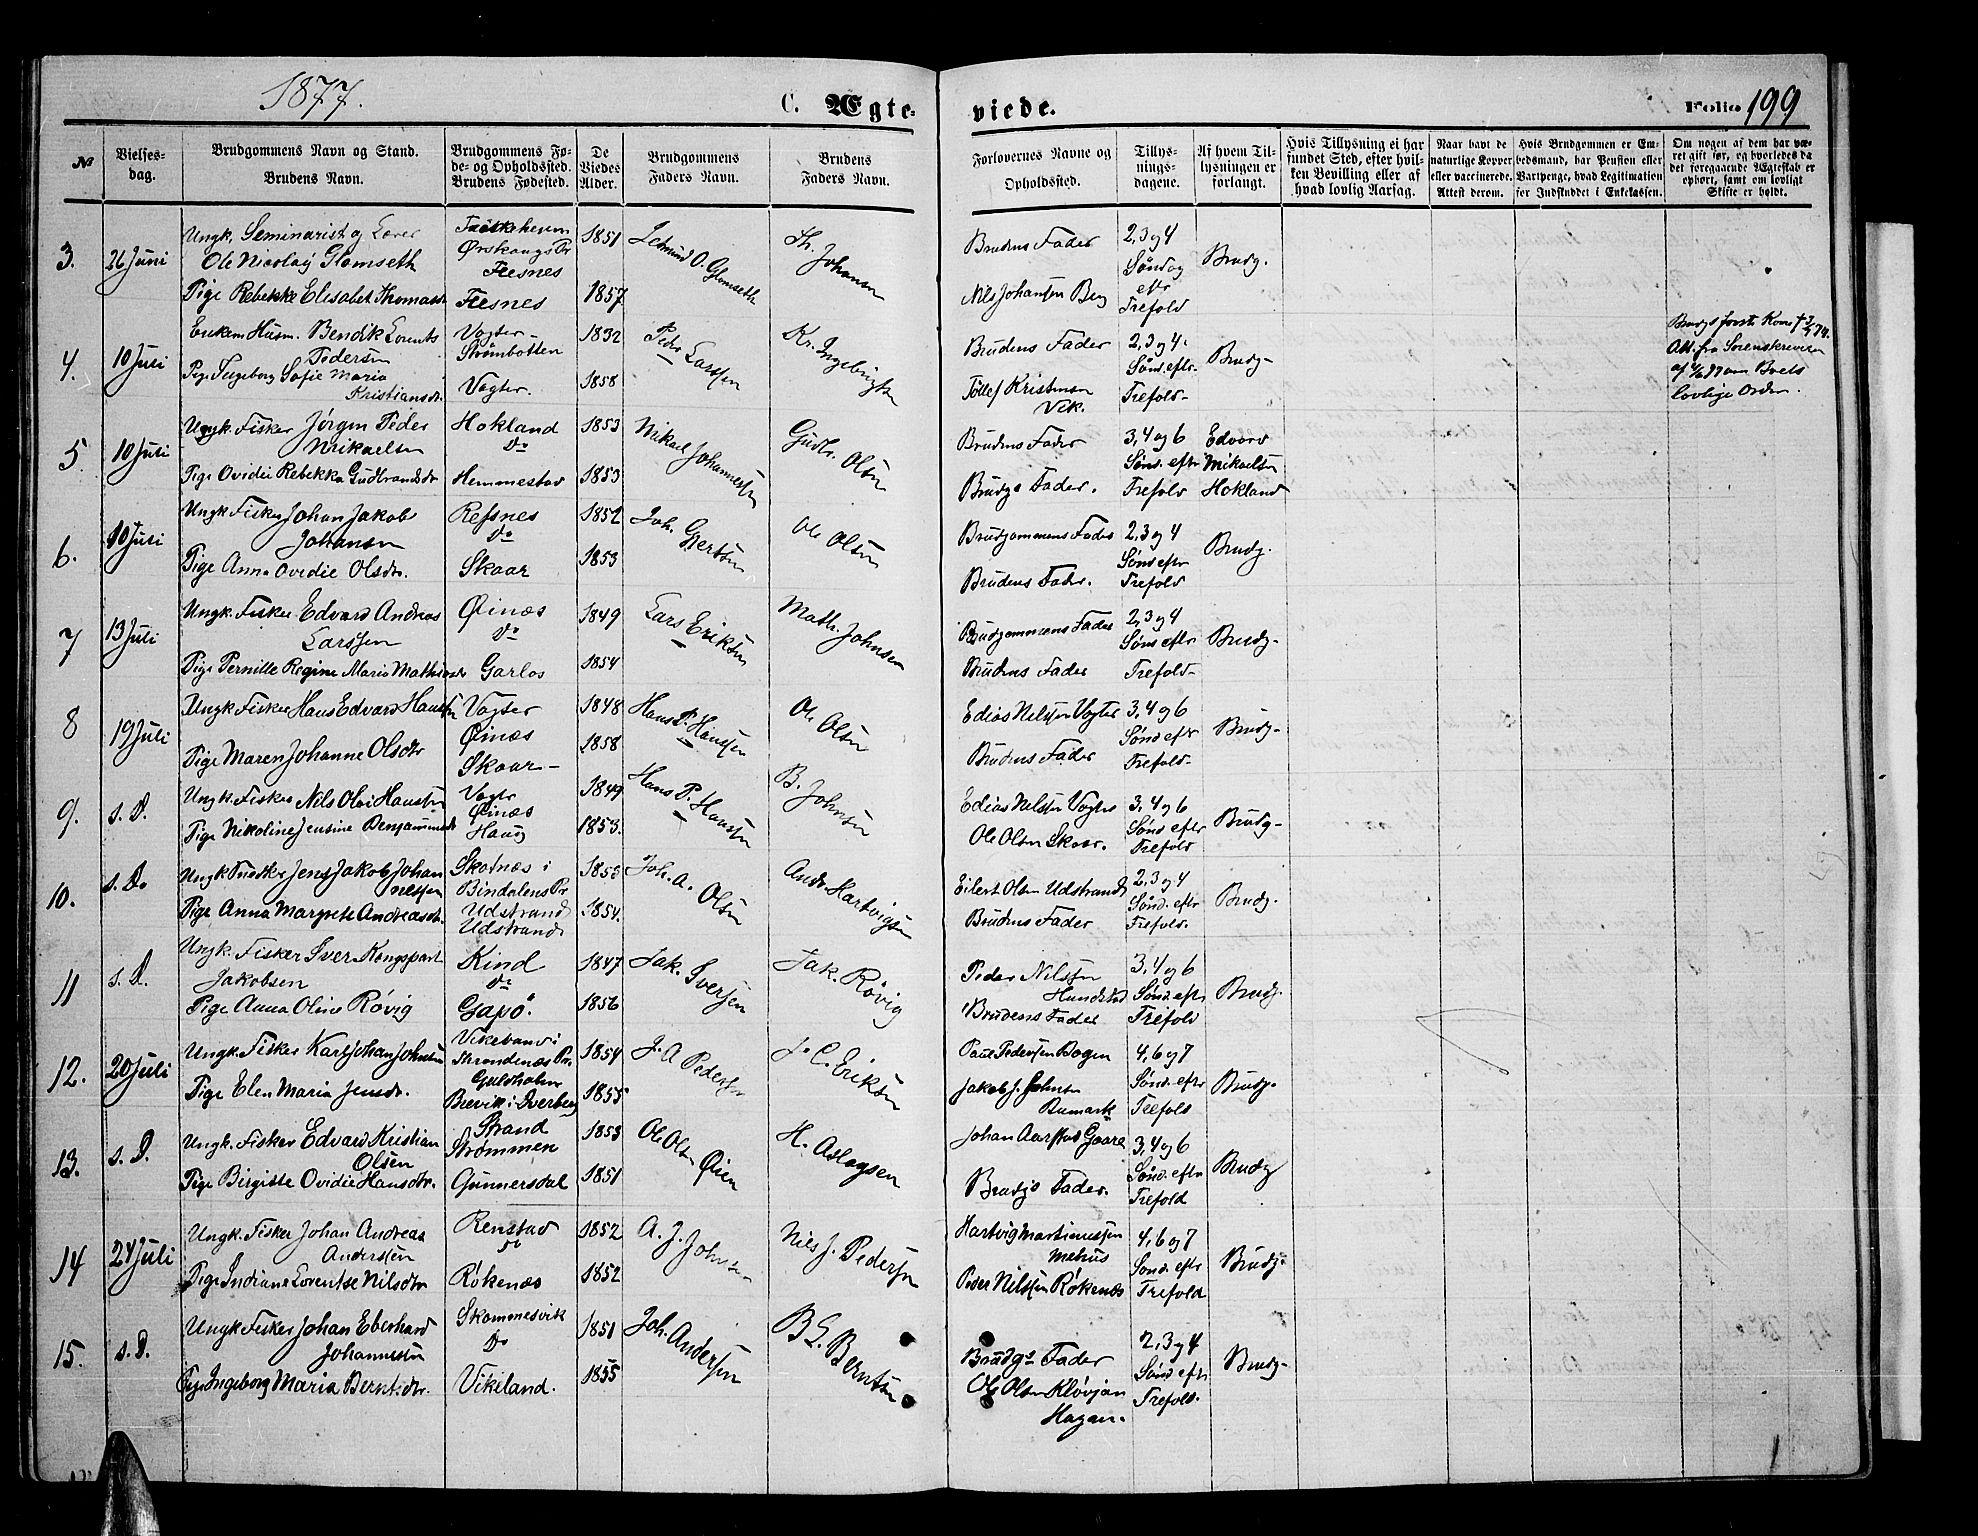 1877.
C. Ægte-
viede.
Folio 199
No
Vielses-
dag.
Brudgommens Navn og Stand.
Brudens Navn.
Brudgommens Fø-
de- og Opholdssted.
Brudens Fødested.
De
Viedes
Alder.
Brudgommens
Faders Navn.
Brudens
Faders Navn.
Forlovernes Navne og
Opholdssted.
Tillys-
nings-
dagene.
Af hvem Til-
lysningen er
forlangt.
Hvis Tillysning ei har
fundet Sted, efter hvil-
ken Bevilling eller af
hvad lovlig Aarsag.
Naar havt de
naturlige Kopper
eller vaccinerede.
Attest derom.
Hvis Brudgommen er Em-
bedsmand, har Pension eller
Vartpenge, hvad Legitimation
for Indskuddet i Enkekassen.
Om nogen af dem har væ-
ret gift før, og hvorledes da
det foregaaende Ægteskab er
ophørt, samt om lovligt
Skifte er holdt.
3.
26 Juni
Ungk. Seminarist og Lærer
Ole Nicolaj Glomseth
Pige Rebekke Elisabet Thomasdtr
Ørskougs Pr
Fresnes
Fresnes
1851
1857
O. Glomseth
Th. Johansen
Brudens Fader
Nils Johansen Berg
2, 3 og 4
Søndag
eftr
Trefold
Brudg.
4.
10 Juli
Enkem. Husm. Bendik Lorents
Pedersen
Pige Ingeborg Sofie Maria
Kristiansdtr.
Vogter-
Strømbotten
Vogter.
1832
1858
Peder Larssen
Kr. Ingebrigtsen
Brudens Fader
Tollef Kristensen
Vik.
2, 3 og 4.
Sønd. eftr.
Trefold-
Brudg-
Brudgs første Kone †
Att. fra Sorenskriveren
af om Boets
lovlige Orden.
5.
10 Juli
Ungk. Fisker Jørgen Peder
Mikaelsen
Pige Ovidie Rebekka Gudbrandsdtr
Hokland
do
Hemmestad
1853
1853
Mikael Johannessen
Gudbr. Olsen
Brudens Fader
Brudgs Fader.
3, 4 og 6
Sønd. eftr
Trefold
Edvard
Mikaelsen
Hokland
6.
10 Juli
Ungk. Fisker Johan Jakob
Johansen
Pige Anna Ovidie Olsdtr.
Refsnes
do
Skaar
1852
1853
Joh. Gjertsen
Ole Olsen
Brudgommens Fader
Brudens Fader.
2, 3 og 4
Sønd eftr
Trefold
Brudg.
7
13 Juli
Ungk. Fisker Edvard Andreas
Larssen
Pige Pernille Regine Maria Mathisdtr
Øinæs
do
Garlos
1849
1854
Lars Eriksen
Math. Johnsen
Brudgommens Fader
Brudens Fader
2, 3 og 4
Sønd eftr
Trefold-
Brudg-
8
19 Juli
Ungk Fisker Hans Edvard Hansen
Pige Maren Johanne Olsdtr
Vogter
Øinæs
Skaar-
1848
1858
Hans P. Hanssen
Ole Olsen
Edias Nilssen Vogter
Brudens Fader
3, 4 og 6
Sønd eftr
Trefold-
Brudg-
9.
s. D.
Ungk. Fisker Nils Olai Hansen
Pige Nikoline Jensine Benjaminsdtr
Vogtr
Øinæs
Haug
1849
1853.
Hans P. Hansen
B. Johnsen
Edias Nilsen Vogter
Ole Olsen Skaar.
3, 4 og 6
Sønd eftr
Trefold
Brudg-
10.
s. D.
Ungk Snedker Jens Jakob Johan
nessen
Pige Anna Margrete Andreasdtr.
Skotnæs i
Bindalens Pr.
Udstrand
Udstrand
1853
1854.
Joh. A. Olsen
Andr. Hartvigsen
Eilert Olsen Udstrand
Brudens Fader
2, 3 og 4
Sønd. eftr
Trefold.
Brudg.
11
s. D.
Ungk. Fisker Iver Kongspart
Jakobsen
Pige Anna Oline Røvig
Kind
do
Gapø.
1847
1856
Jak. Iversen
Jak. Røvig
Peder Nilssen
Hundstad
Brudens Fader
3, 4 og 6
Sønd. eftr
Trefold
Brudg.
12.
20 Juli
Ungk. Fisker Karl Johan Johnsen
Pige Elen Maria Jensdtr.
Vikebond i
Throndenæs Pr.
Guldholm
Brevik i Qverberg
1854
1855
J. A Pedersen
J. C. Eriksen
Paul Pedersen Bogen
Jakob J. Johnsen
Bumark
4, 6 og 7
Sønd. eftr
Trefold
Brudg.
13.
s. D.
Ungk. Fisker Edvard Kristian
Olsen
Pige Birgitte Ovidie Hansdtr.
Strand
Strømmen
Gunnersdal
1853
1851
Ole Olsen Øien
H. Aslagsen
Johan Gaare
Brudgs Fader.
3, 4 og 6
Sønd. eftr
Trefold
Brudg
14
24 Juli
Ungk. Fisker Johan Andreas
Anderssen
Pige Indiane Lorentse Nilsdtr
Renstad
do
Røkenæs
1852
1852
A. J. Johnsen
Nils J. Pedersen
Hartvig Martinussen
Mehus
Peder Nilssen Røkenæs
4, 6 og 7
Sond. eftr
Trefold
Brudg-
15.
s. D.
Ungk Fisker Johan Eberhard
Johannesen
Pige Ingeborg Maria Berntsdtr.
Skommesvik
Do
Vikeland.
1851
1855
Joh. Andersen
B S. Berntsen
Brudgs Fader
Ole Olsen Kløvjan
Hagan.
2, 3 og 4
Sønd eftr
Trefold.
Brudg-